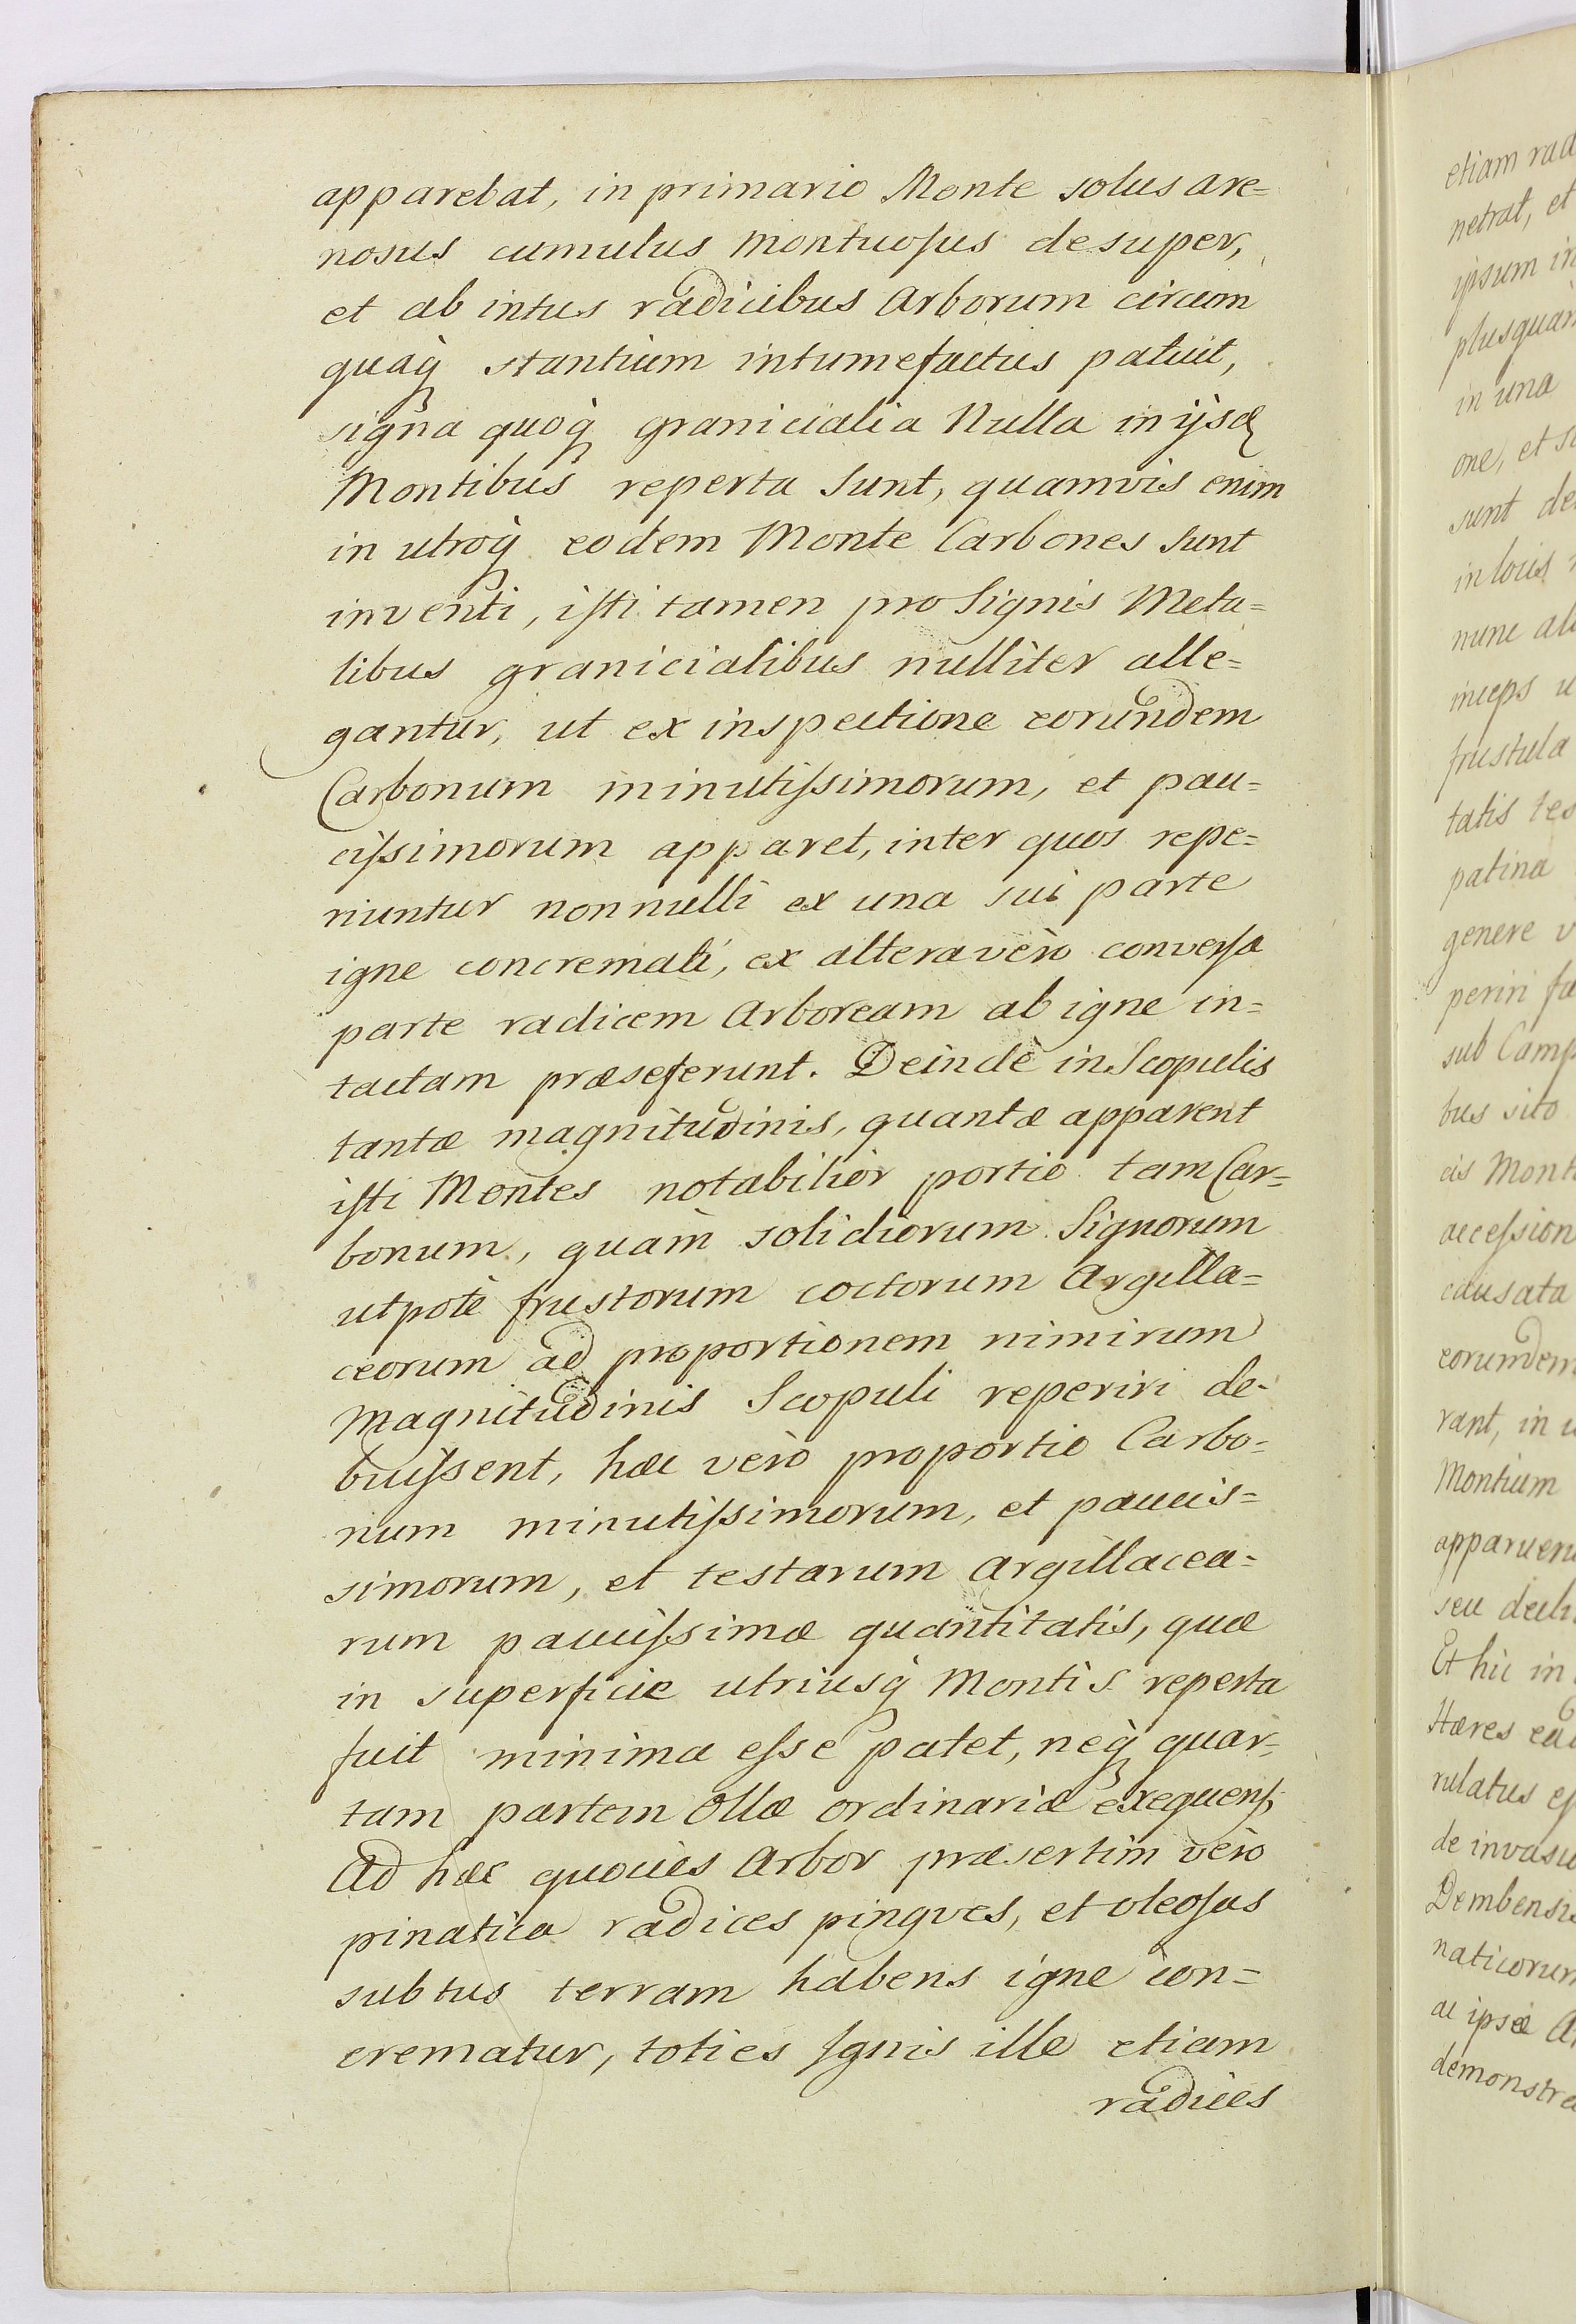 apparebat, in primario Monte solus are=
nosus cumulus montuoſus desuper,
et ab intus radicibus Arborum circum
quaq stantium intumefactus patuit,
signa quoq granicialia Nulla in ijsd
Montibus reperta sunt, quamvis enim
in utroq eodem Monte Carbones sunt
inventi, iſti tamen pro Signis Meta=
libus granicialibus nulliter alle=
gantur, ut ex inspectione eorundem
Carbonum minutiſsimorum, et pau=
ciſsimorum apparet, inter quos repe=
riuntur nonnulli ex una sui parte
igne concremati, ex altera vero converſa
parte radicem Arboream ab igne in=
tactam præseferunt. Deindè in Scopulis
tantæ magnitudinis, quantæ apparent
iſti Montes notabilior portio tam Car=
bonum, quàm solidiorum Signorum
utpotè frustorum coctorum Argilla=
ceorum ad proportionem nimirum
Magnitudinis Scopuli reperiri de=
buiſsent, hæc verò proportio Carbo=
num minutiſsimorum, et paucis=
simorum, et testarum argillacea=
rum pauciſsimæ quantitatis, quæ
in superficie utriusq Montis reperta
fuit minima eſse patet, neq quar=
tam partem Ollæ ordinariæ exequens,
Ad hæc quoties Arbor præsertim verò
pinatica radices pingves, et oleoſas
subtus terram habens igne con=
crematur, toties Ignis ille etiam
radices
etiam rad
netrat, et
ipsum in
plusquàm
in una
one, et
sunt de
in locis
nunc
inceps
frustula
tatis tes
patina
genere v
periri
sub Camp
bus sito
Mont
acceſsion
causata
eorundem
rant, in
Montium
apparuer
seu decli
Et hic in
Hæres
rulatus
de invasi
Dembensi
naticorum
ac ipsæ
demonstra